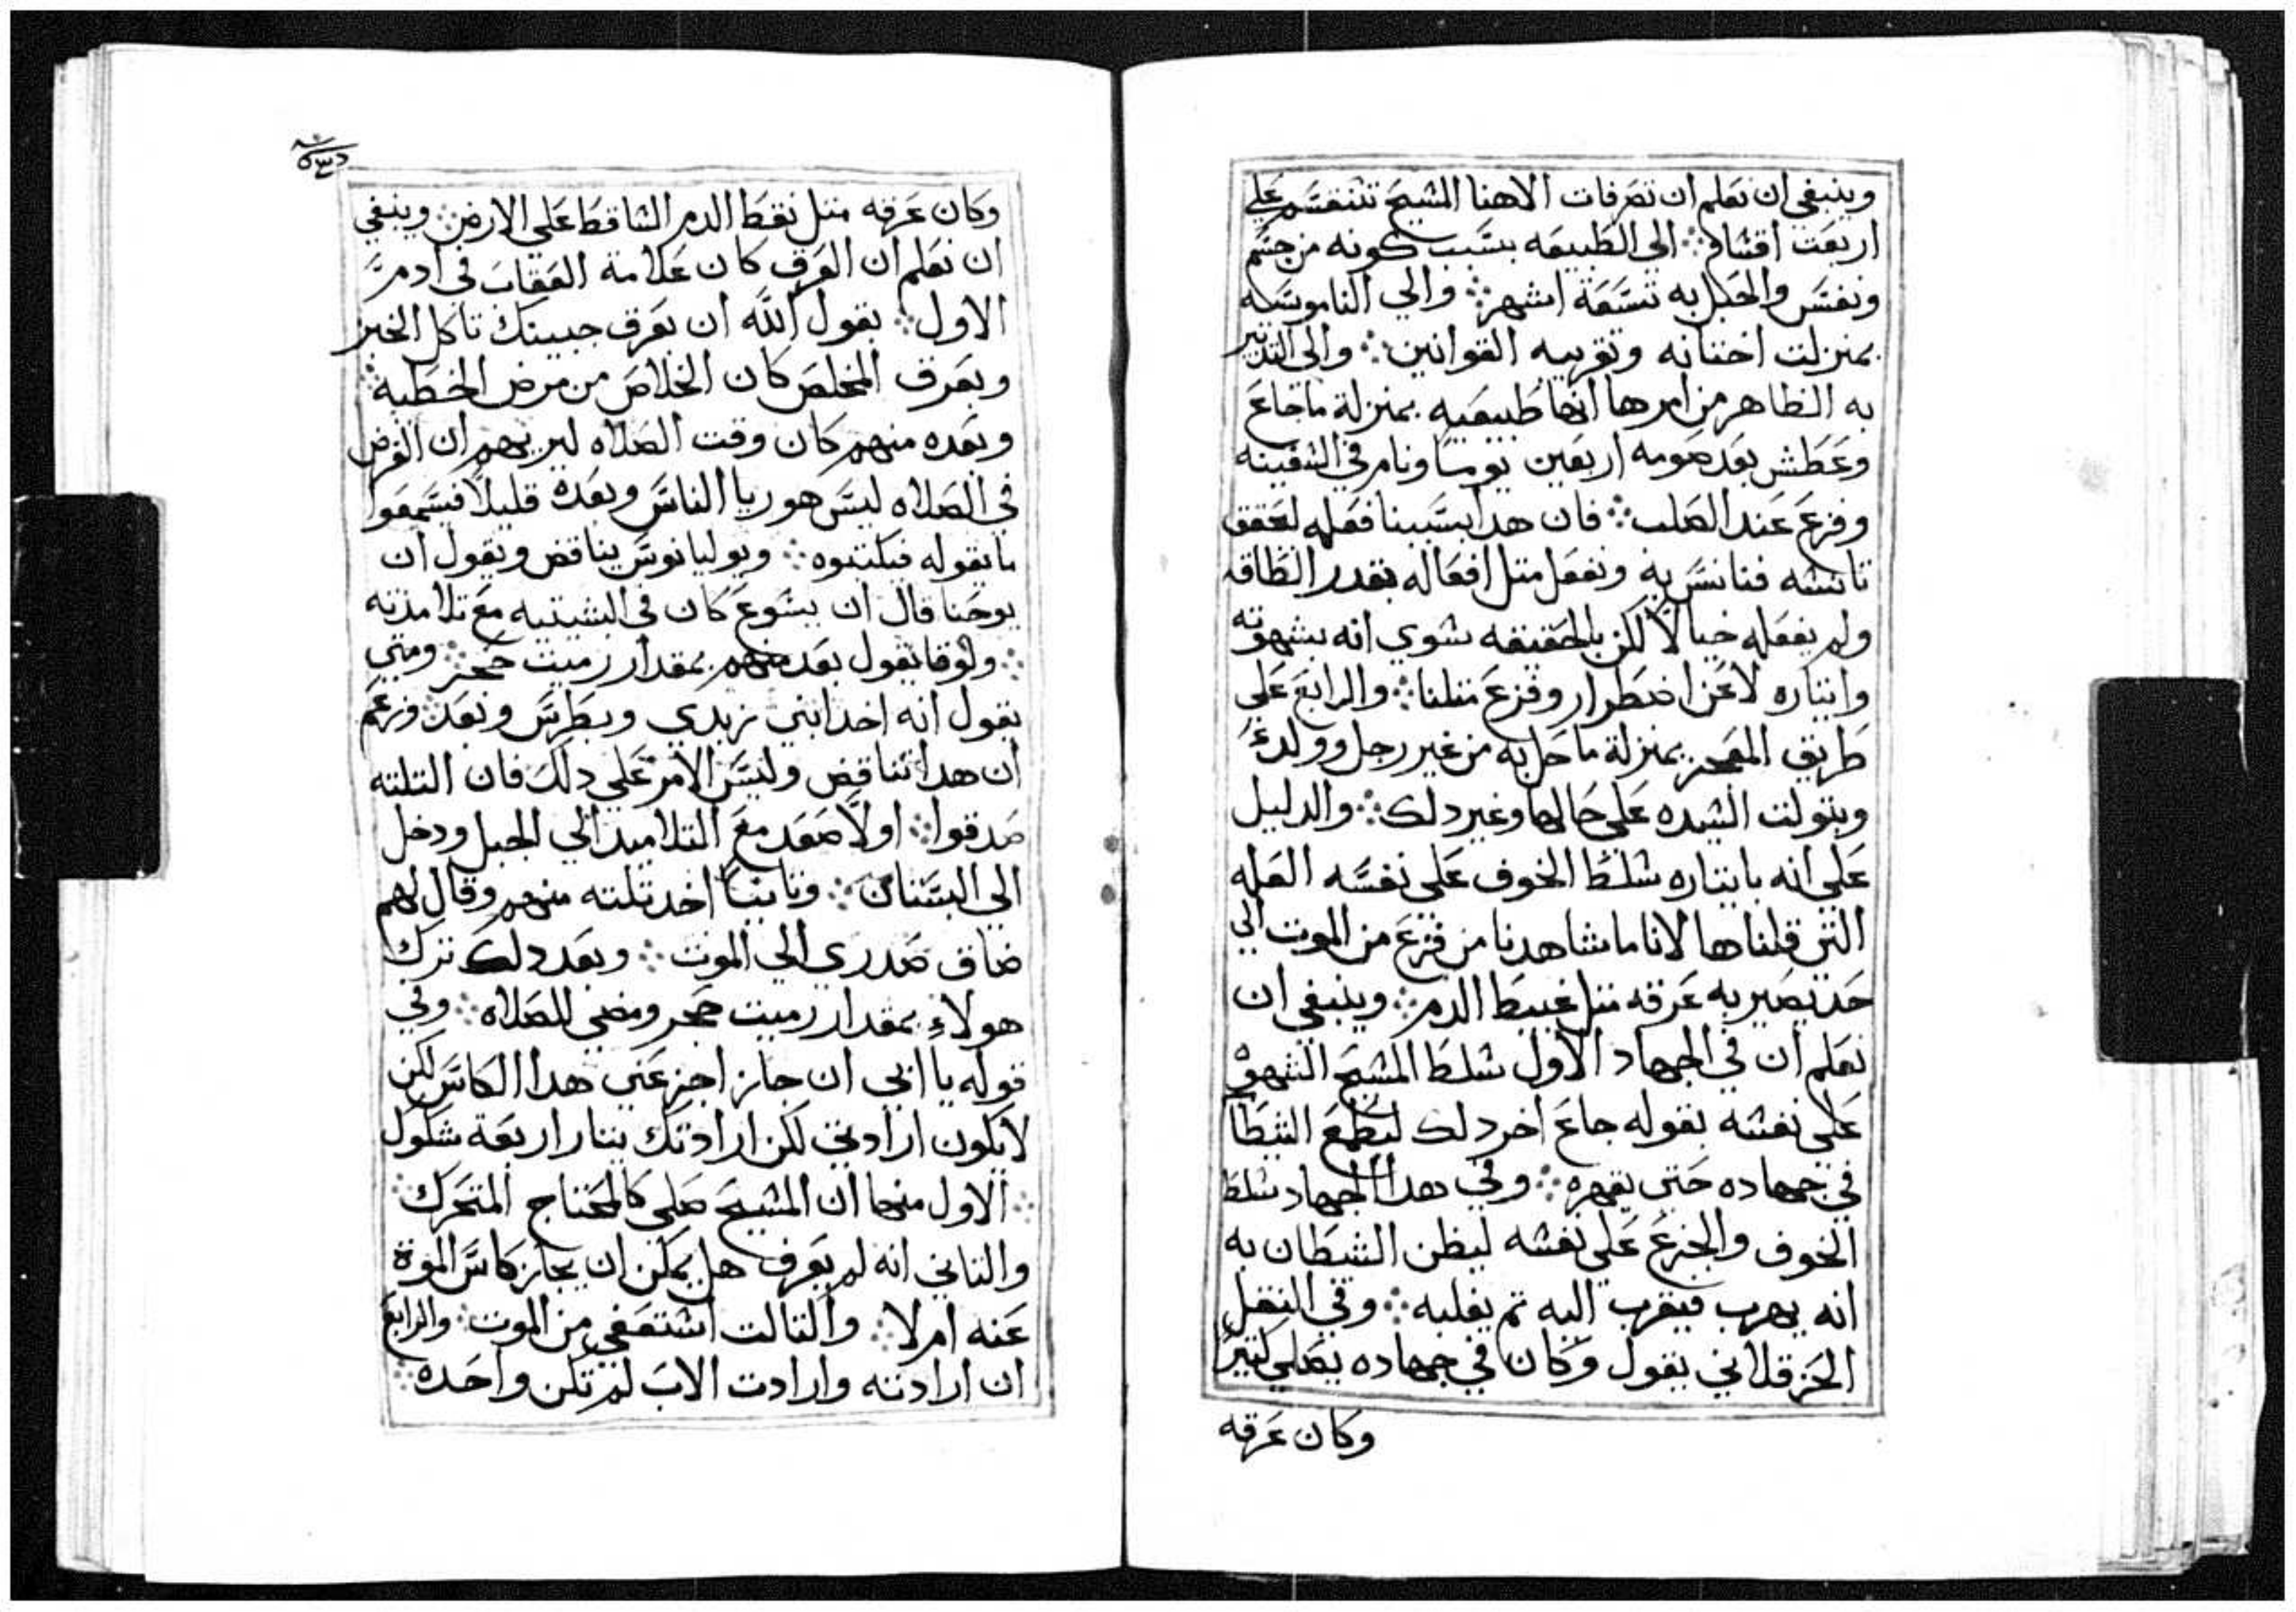 وينبغي ان نعلم ان تصرفات الاهنا المشيح تنقسم علي
اربعت اقشام ⁘ الى الطبيعه بسبب كونه من جسم
ونفس والحبل به تسعة اشهر ⁘ والي الناموسيه
بمنزلت اختتانه وتقريبه القوانين ⁘ والى التدبير
به الظاهر من امرها انها طبيعيه بمنزلة ما جاع
وعطش بعد صومه اربعين يوما ونام في الشفينه
وفزع عند الصلب ⁘ فان هدا بسببنا فعله لتحقق
تانسه فنانس به ونفعل مثل افعاله بقدر الطاقه
ولم يفعله خيالا لكن بالحقيقه شوي انه بشهوته
وايتاره لا عن اضطرار وفزع متلنا ⁘ والرابع علي
طريق المعجز بمنزلة ما حبل به من غير رجل وولد
وبتولت الشيده على حالها وغير دلك ⁘ والدليل
علي انه بايتاره شلط الخوف على نفسه العله
التي قلناها لانا ما شاهدنا من فزع من الموت الي
حد يصير به عرقه متل عبيط الدم ⁘ وينبغي ان
نعلم ان في الجهاد الاول شلط المشيح الشهوة
على نفشه بقوله جاع اخر دلك ليطمع الشيطان
في جهاده حتي يقهره ⁘ وفي هدا الجهاد شلط
الخوف والجزع على نفشه ليظن الشيطان به
انه يهرب فيقرب اليه تم يغلبه ⁘ وفي النقل
الحرقلاني يقول وكان في جهاده يصلي كتيرا
وكان عرقه
وكان عرقه متل نقط الدم الشاقط علي الارض ⁘ وينبغي
ان نعلم ان العرق كان علامة العقاب في ادم
الاول ⁘ بقول الله ان بعرق جبينك تاكل الخبز
وبعرق المخلص كان الخلاص من مرض الخطيه ⁘
وبعده منهم كان وقت الصلاه ليريهم ان الغرض
في الصلاه ليس هو ريا الناس وبعده قليلا فيسمعوا
ما يقوله فيكتبوه ⁘ ويوليانوس يناقض ويقول ان
يوحنا قال ان يشوع كان في البشتيه مع تلامذته
⁘ ولوقا يقول بعد منهم بمقدار رميت حجر ⁘ ومتي
يقول انه اخد ابني زبدي وبطرس وبعد وزعم
ان هدا تناقض وليس الامر علي دلك فان التلته
صدقوا ⁘ اولا صعد مع التلاميد الي الجبل ودخل
الي البستان ⁘ وتانيا اخد تلته منهم وقال لهم
ضاق صدري الي الموت ⁘ وبعد دلك ترك
هولاء بمقدار رميت حجر ومضي للصلاه ⁘ وفي
قوله يا ابي ان جاز اجز عني هدا الكاس لكن
لا يكون ارادتي لكن ارادتك يتار اربعة شكوك
⁘ الاول منها ان المشيح صلي كالمحتاج المتحرك ⁘
والتاني انه لم يعرف هل يمكن ان يجاز كاس الموت
عنه ام لا ⁘ والتالت اشتعفي من الموت ⁘ والرابع
ان ارادته وارادت الاب لم تكن واحده ⁘